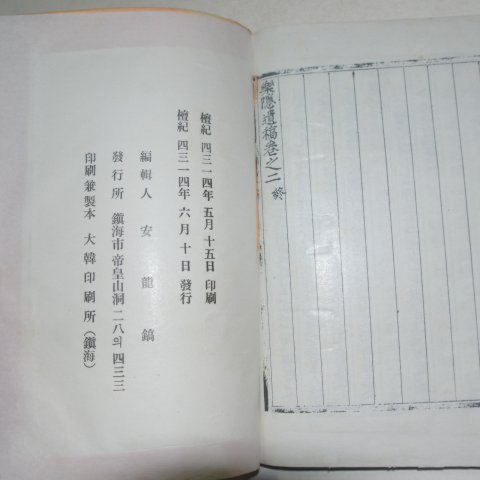 樂隱遺稿卷之二 終
檀紀 四三一四年 五月 十五日 印刷
檀紀 四三一四年 六月 十日 發行
編輯人 安龍鎬
發行所 鎭海市 帝皇山洞 二八의 四三三
印刷兼製本 大韓印刷所 (鎭海)